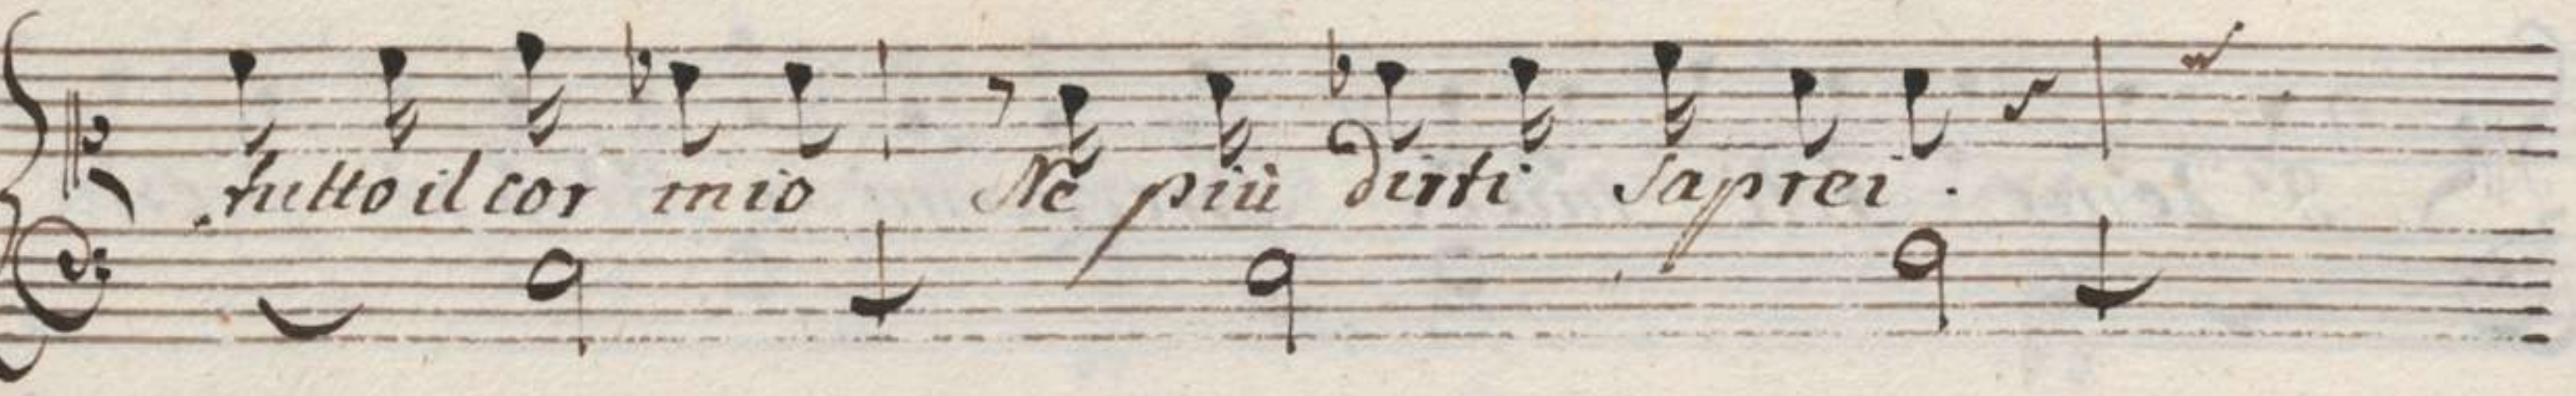 tutto il cor mio Ne più dirti saprei.